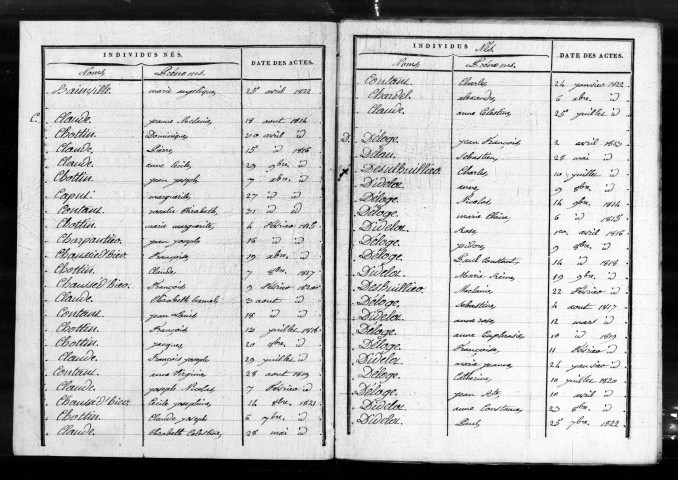 INDIVIDUS NÉS. DATE DES ACTES.
Noms Prénoms.
Bainville. marie angelique 28 avril 1822
C. Claude. jeanne Melanie 18 aout 1814
Chottin. Dominique 20 avril id
Claude. Pierre 15 id 1816
Claude. anne Cécile 29 9bre id
Chottin jean joseph 7 id
marguerite 27 id id
Contant. Elizabeth 31 id id
Chottin. marie marguerite 4 Février 1815
Charpentier. jean joseph 16 id id
François 19 id
Chottin. Claude 7 8bre 1817
François 9 Février
Claude Elizabeth 3 aout id
Contant jean Louis 18 id id
Chottin. François 12 juillet
Chottin. jacques 20 id
Claude. François joseph 29 juillet id
Contant. anne Virginie 28 aout 1819
Claude. joseph Nicolas 7 Février id
Cécile josephine 14 8bre 1821
Chottin Claude joseph 6 9bre id
Claude. Elizabeth Celestine 28 mai id
INDIVIDUS Nés. DATE DES ACTES.
Noms Prénoms.
Contant Charles 24 janvier 1822
Chardel alexandre 6 id
Claude anne Celestine 25 juillet id
D. Déloge. jean François 2 avril 1813
Sebastien 28 mai id
Charles 10 juillet id
Didelot. anne 9 8bre id
Déloge. Nicolas 14 9bre 1814
Déloge. marie Claire 6 id 1815
Didelot. Rose 1er avril 1816
Déloge. 9 8bre id
Déloge. Paul Constant 14 id 1818
Didelot. Marie 19 9bre id
Melanie 22 Février id
Déloge. Sebastien 4 aout 1817
Didelot anne rose 12 mars id
Déloge. anne Euphrasie 10 id 1819
Déloge. Françoise 11 Février id
Didelot. marie jeanne 24 janvier id
Déloge. Catherine 10 juillet 1820
Déloge. jean 10 avril id
Didelot. anne Constance 23 8bre id
Didelot. Paul 25 9bre 1822